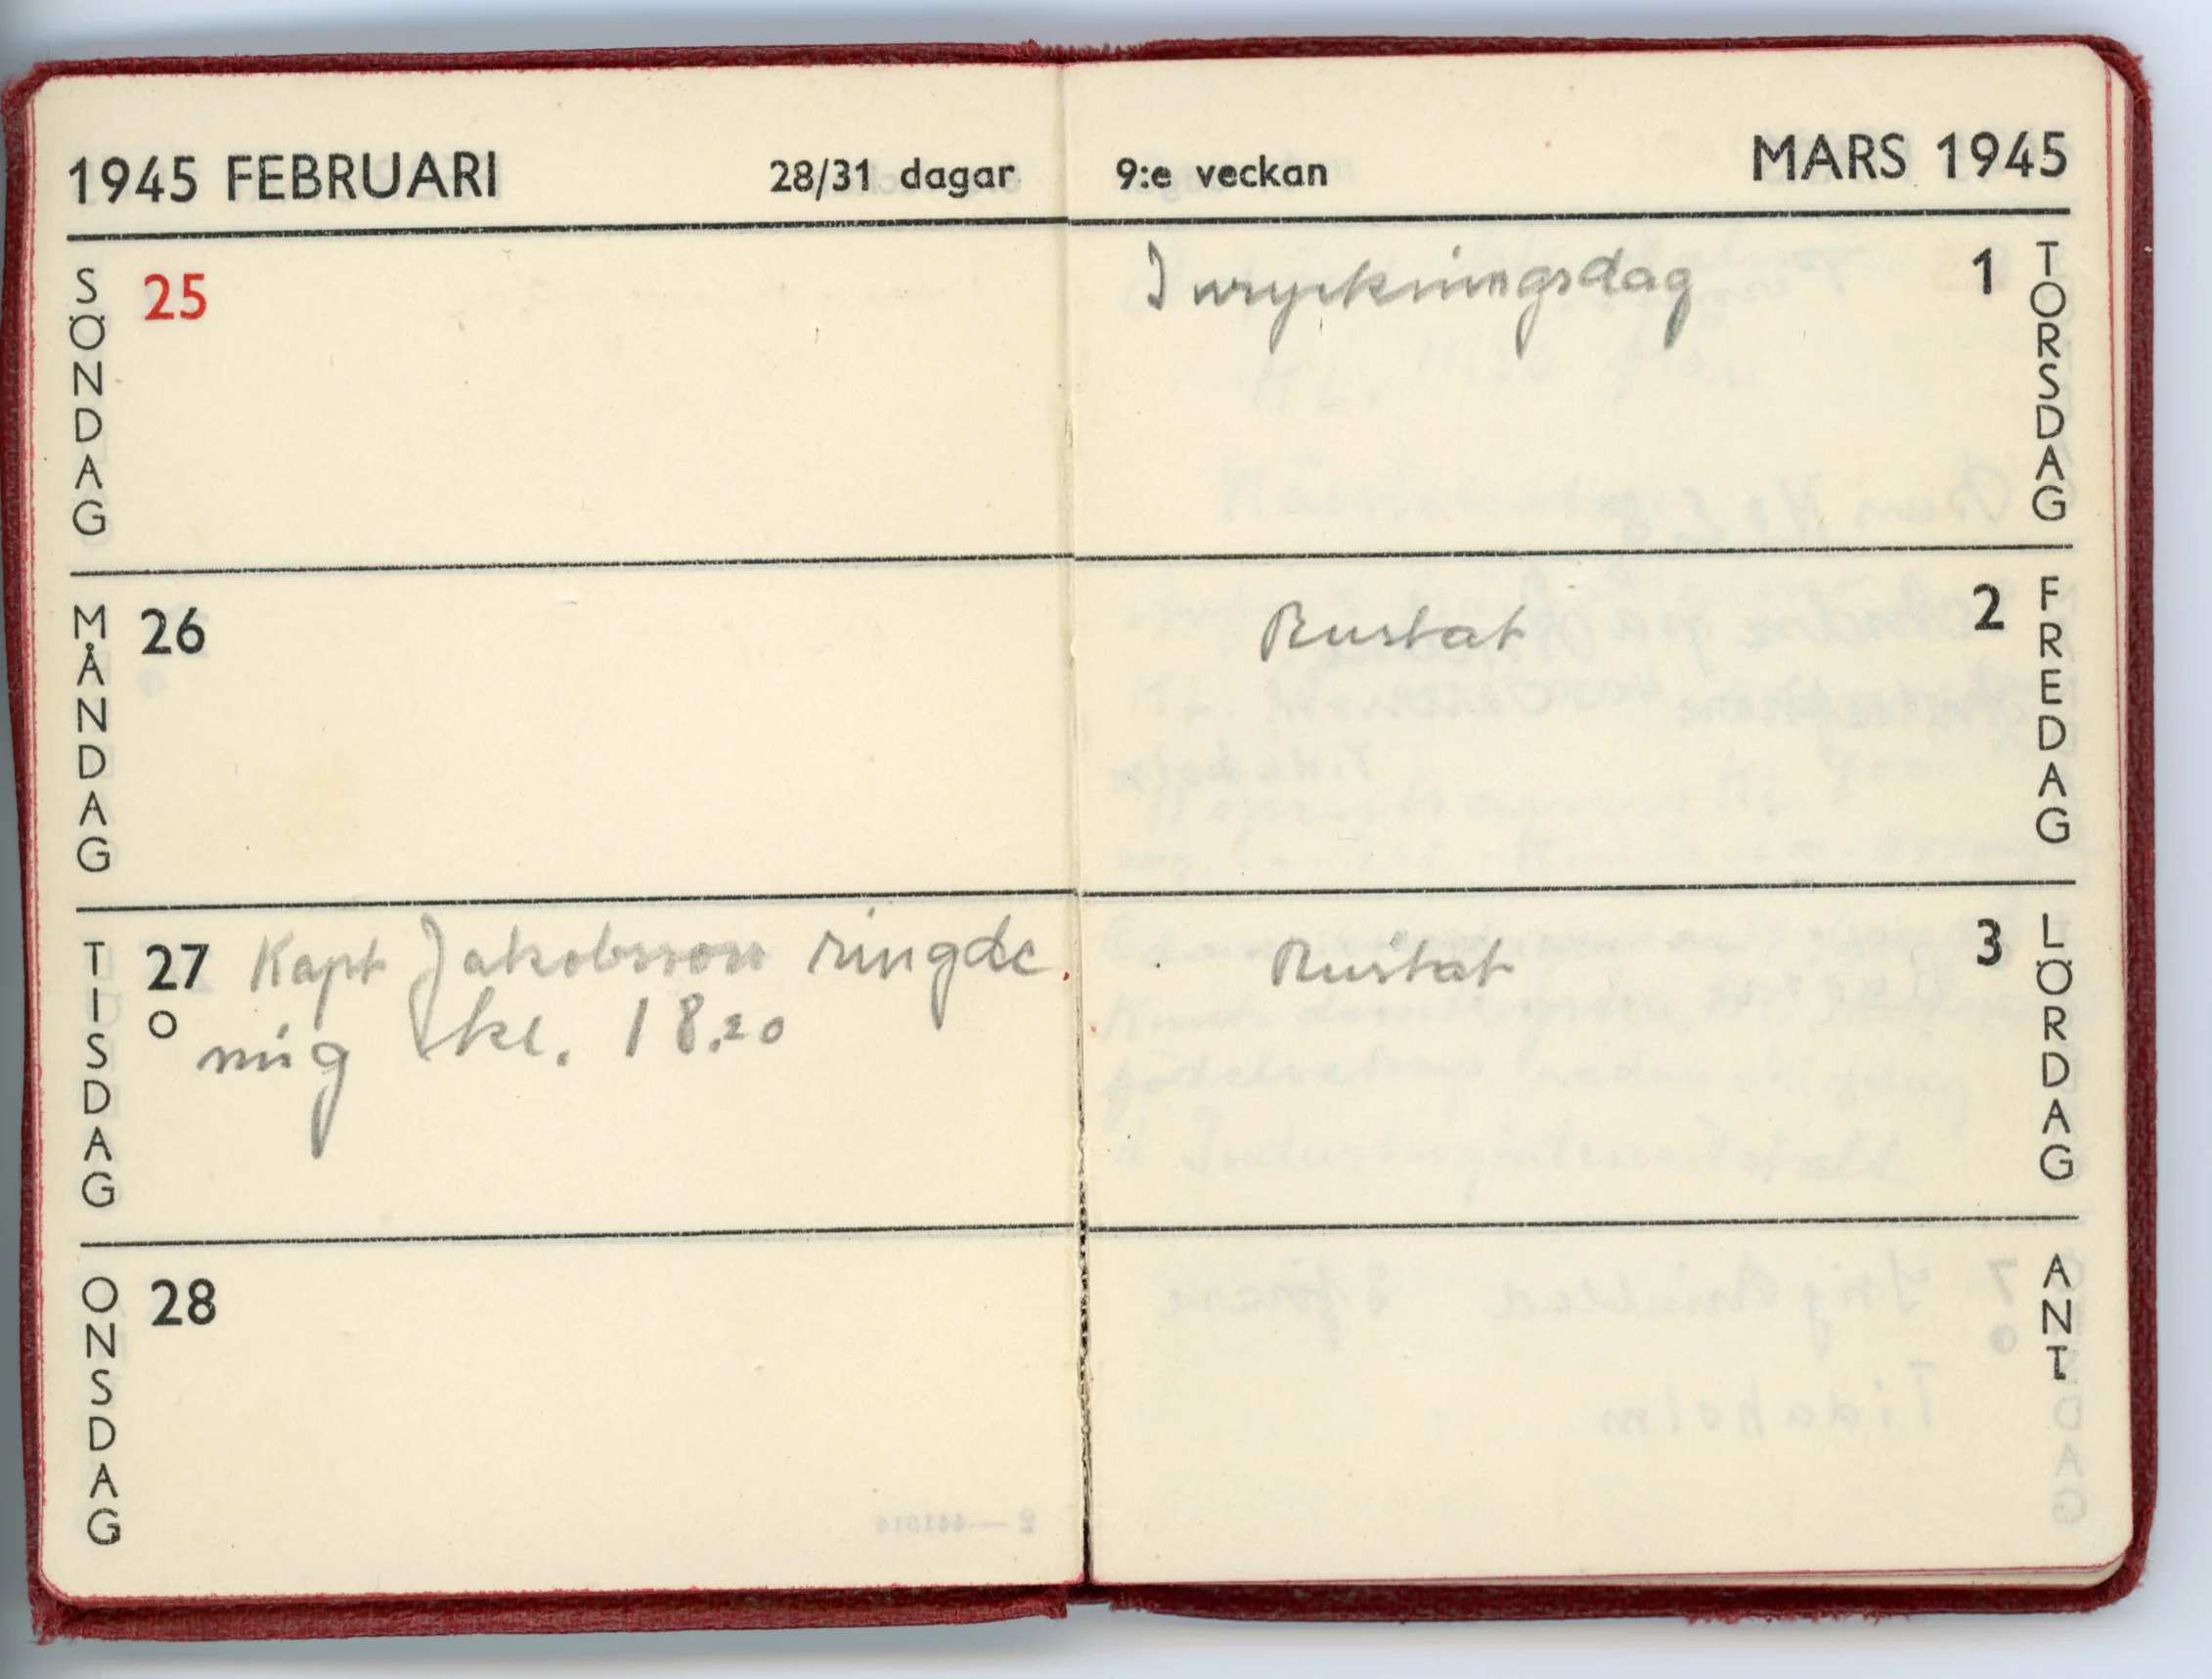 1945 FEBRUARI 28/31 dagar
SÖNDAG 25
MÅNDAG 26
TISDAG 27 Kapt Jakobsson ringde
mig kl. 18.20
ONSDAG 28
9:e veckan MARS 1945
Inryckningsdag 1 TORSDAG
Rustat 2 FREDAG
Rustat 3 LÖRDAG
ANT